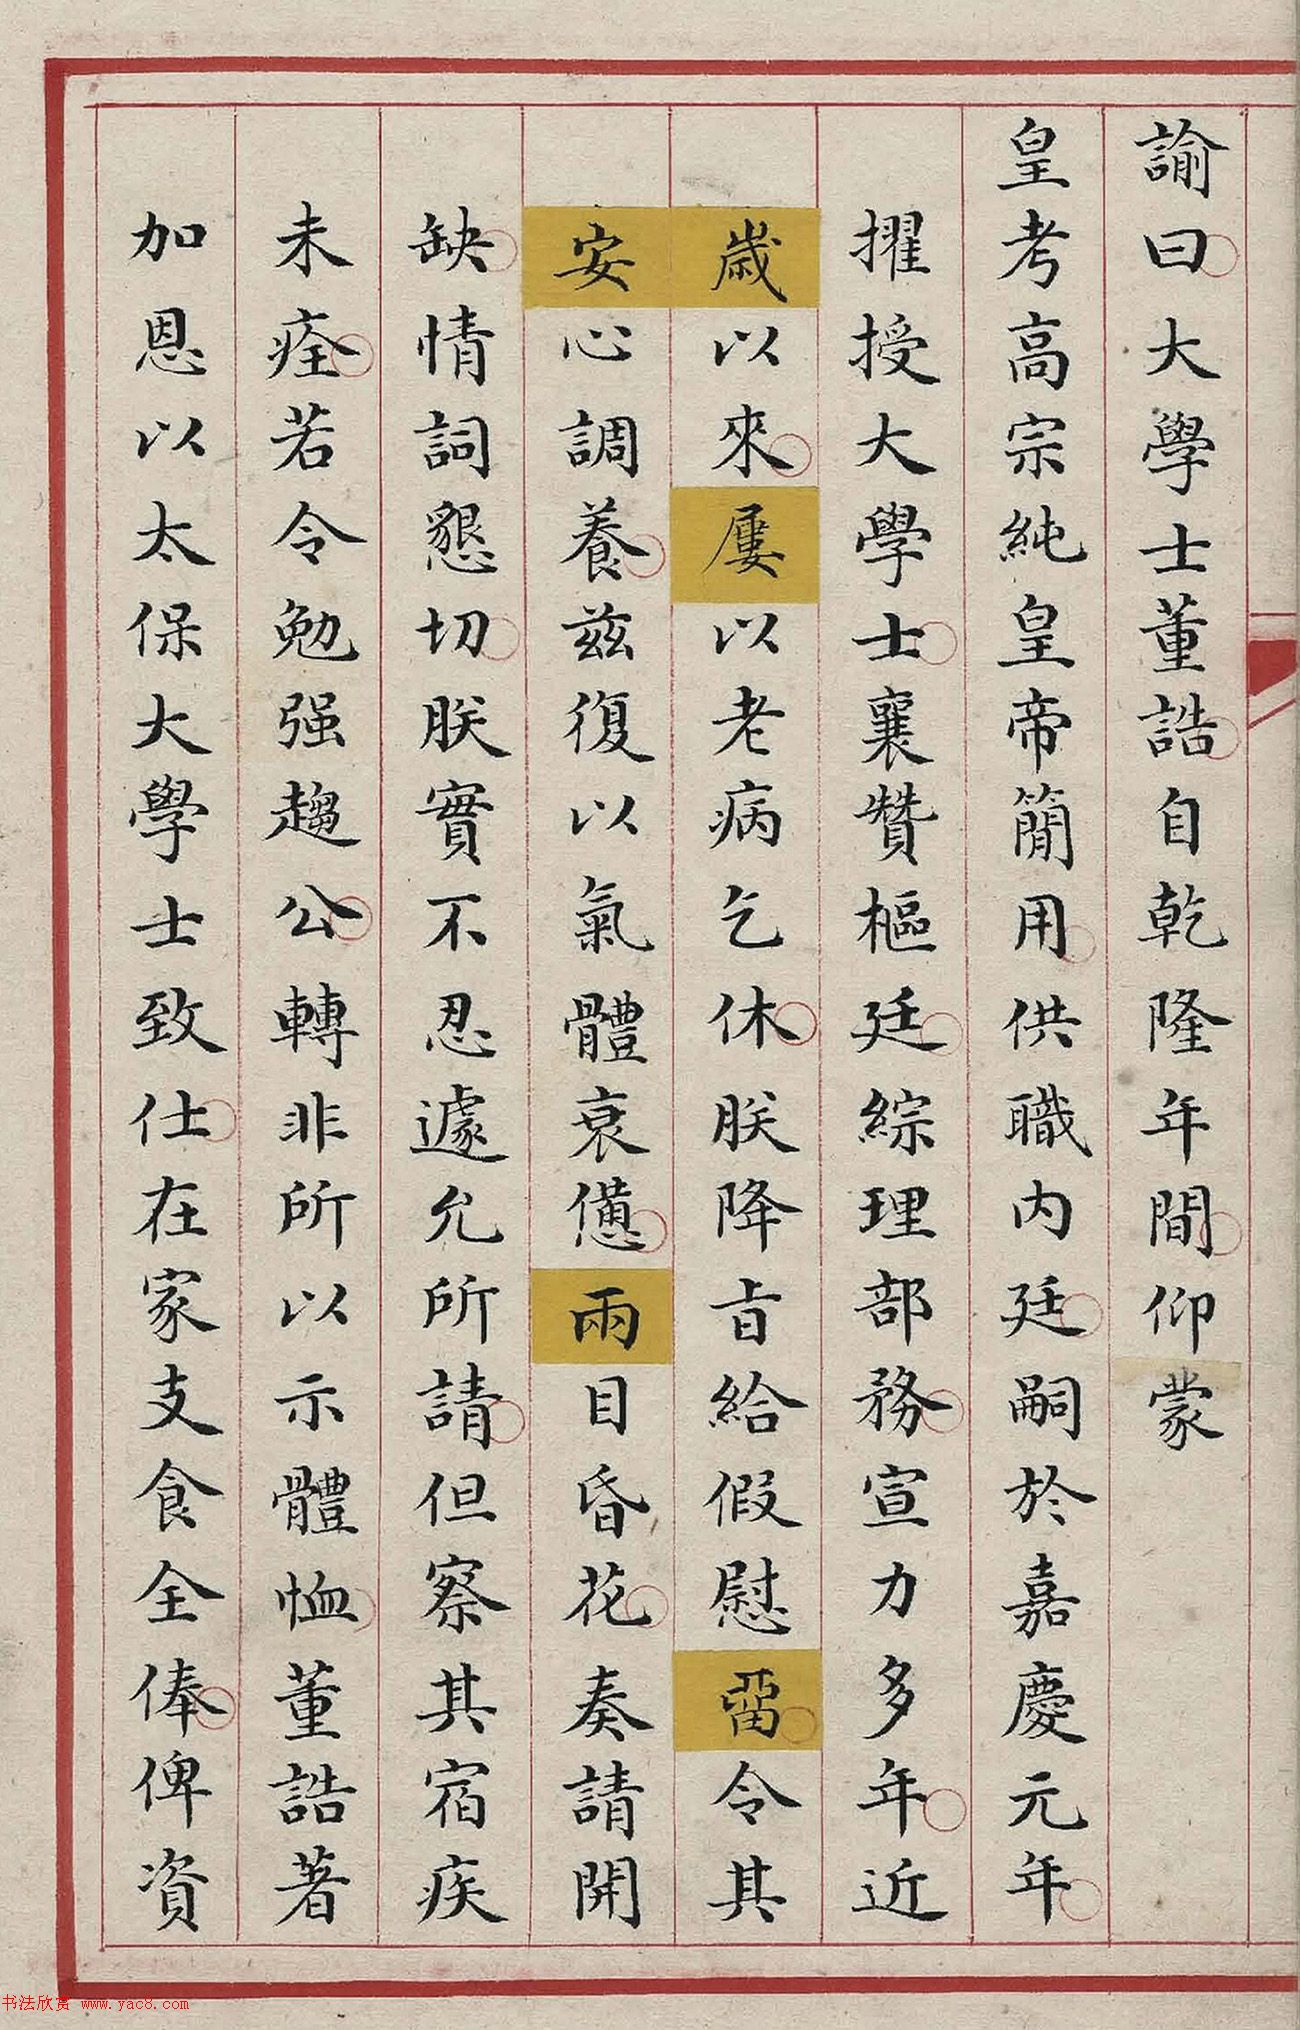 諭曰大學士董誥自乾隆年間仰蒙
皇考高宗純皇帝簡用供職内廷嗣於嘉慶元年
擢授大學士襄贊樞廷綜理部務宣力多年近
歲以來屢以老病乞休朕降旨給假慰畱令其
安心調養茲復以氣體衰憊兩目昏花奏請開
缺情詞懇切朕實不忍遽允所請但察其宿疾
未痊若令勉强趨公轉非所以示體恤董誥著
加恩以太保大學士致仕在家支食全俸俾資
书法欣赏 www.yac8.com